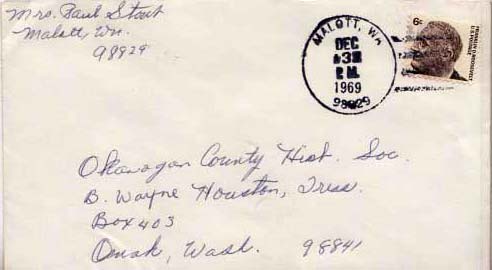 Mrs. Paul Stout
Malott, Wn.
98829
MALOTT, WA
DEC
3
P.M.
1969
98829
6¢
FRANKLIN D. ROOSEVELT
U.S. POSTAGE
Okanogan County Hist. Soc.
B. Wayne Houston, Tress.
Box 403
Omak, Wash. 98841